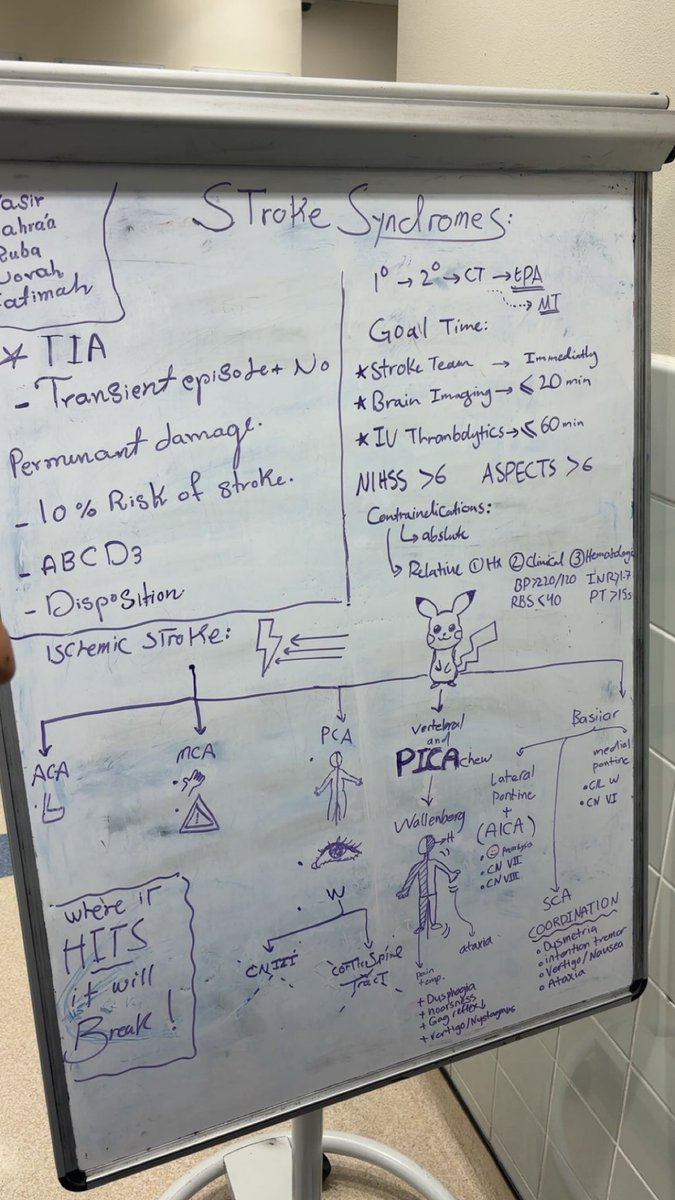 STroke Syndromes:
asir
ahra'a
Ruba
Norah
Fatimah
* TIA
- Transient episode + No
Permunant damage.
- 10% Risk of stroke.
- ABCD3
- Disposition
1° → 2° → CT → tPA
MT
Goal Time:
* Stroke Team → Immediatly
* Brain Imaging → ≤ 20 min
* IV Thrombolytics → ≤ 60 min
NIHSS >6 ASPECTS >6
Contraindications:
↳ absolute
↳ Relative ① Hx ② Clinical ③ Hematologic
BP>220/120 INR>1.7
RBS <40 PT >15s
Ischemic Stroke:
ACA
MCA
PCA
W
CN III
Corticospine
Tract
Vertebral
and
PICAchew
Wallenberg
H
Pain
temp.
ataxia
+ Dysphagia
+ hoarsness
+ Gag reflex↓
+ Vertigo/Nystagmus
Basilar
Lateral
Pontine
+
(AICA)
• Paralysis
• CN VII
• CN VIII
medial
pontine
• C/L W
• CN VI
SCA
COORDINATION
• Dysmetria
• intention tremor
• Vertigo/Nausea
• Ataxia
where it
HITS
it will
Break!